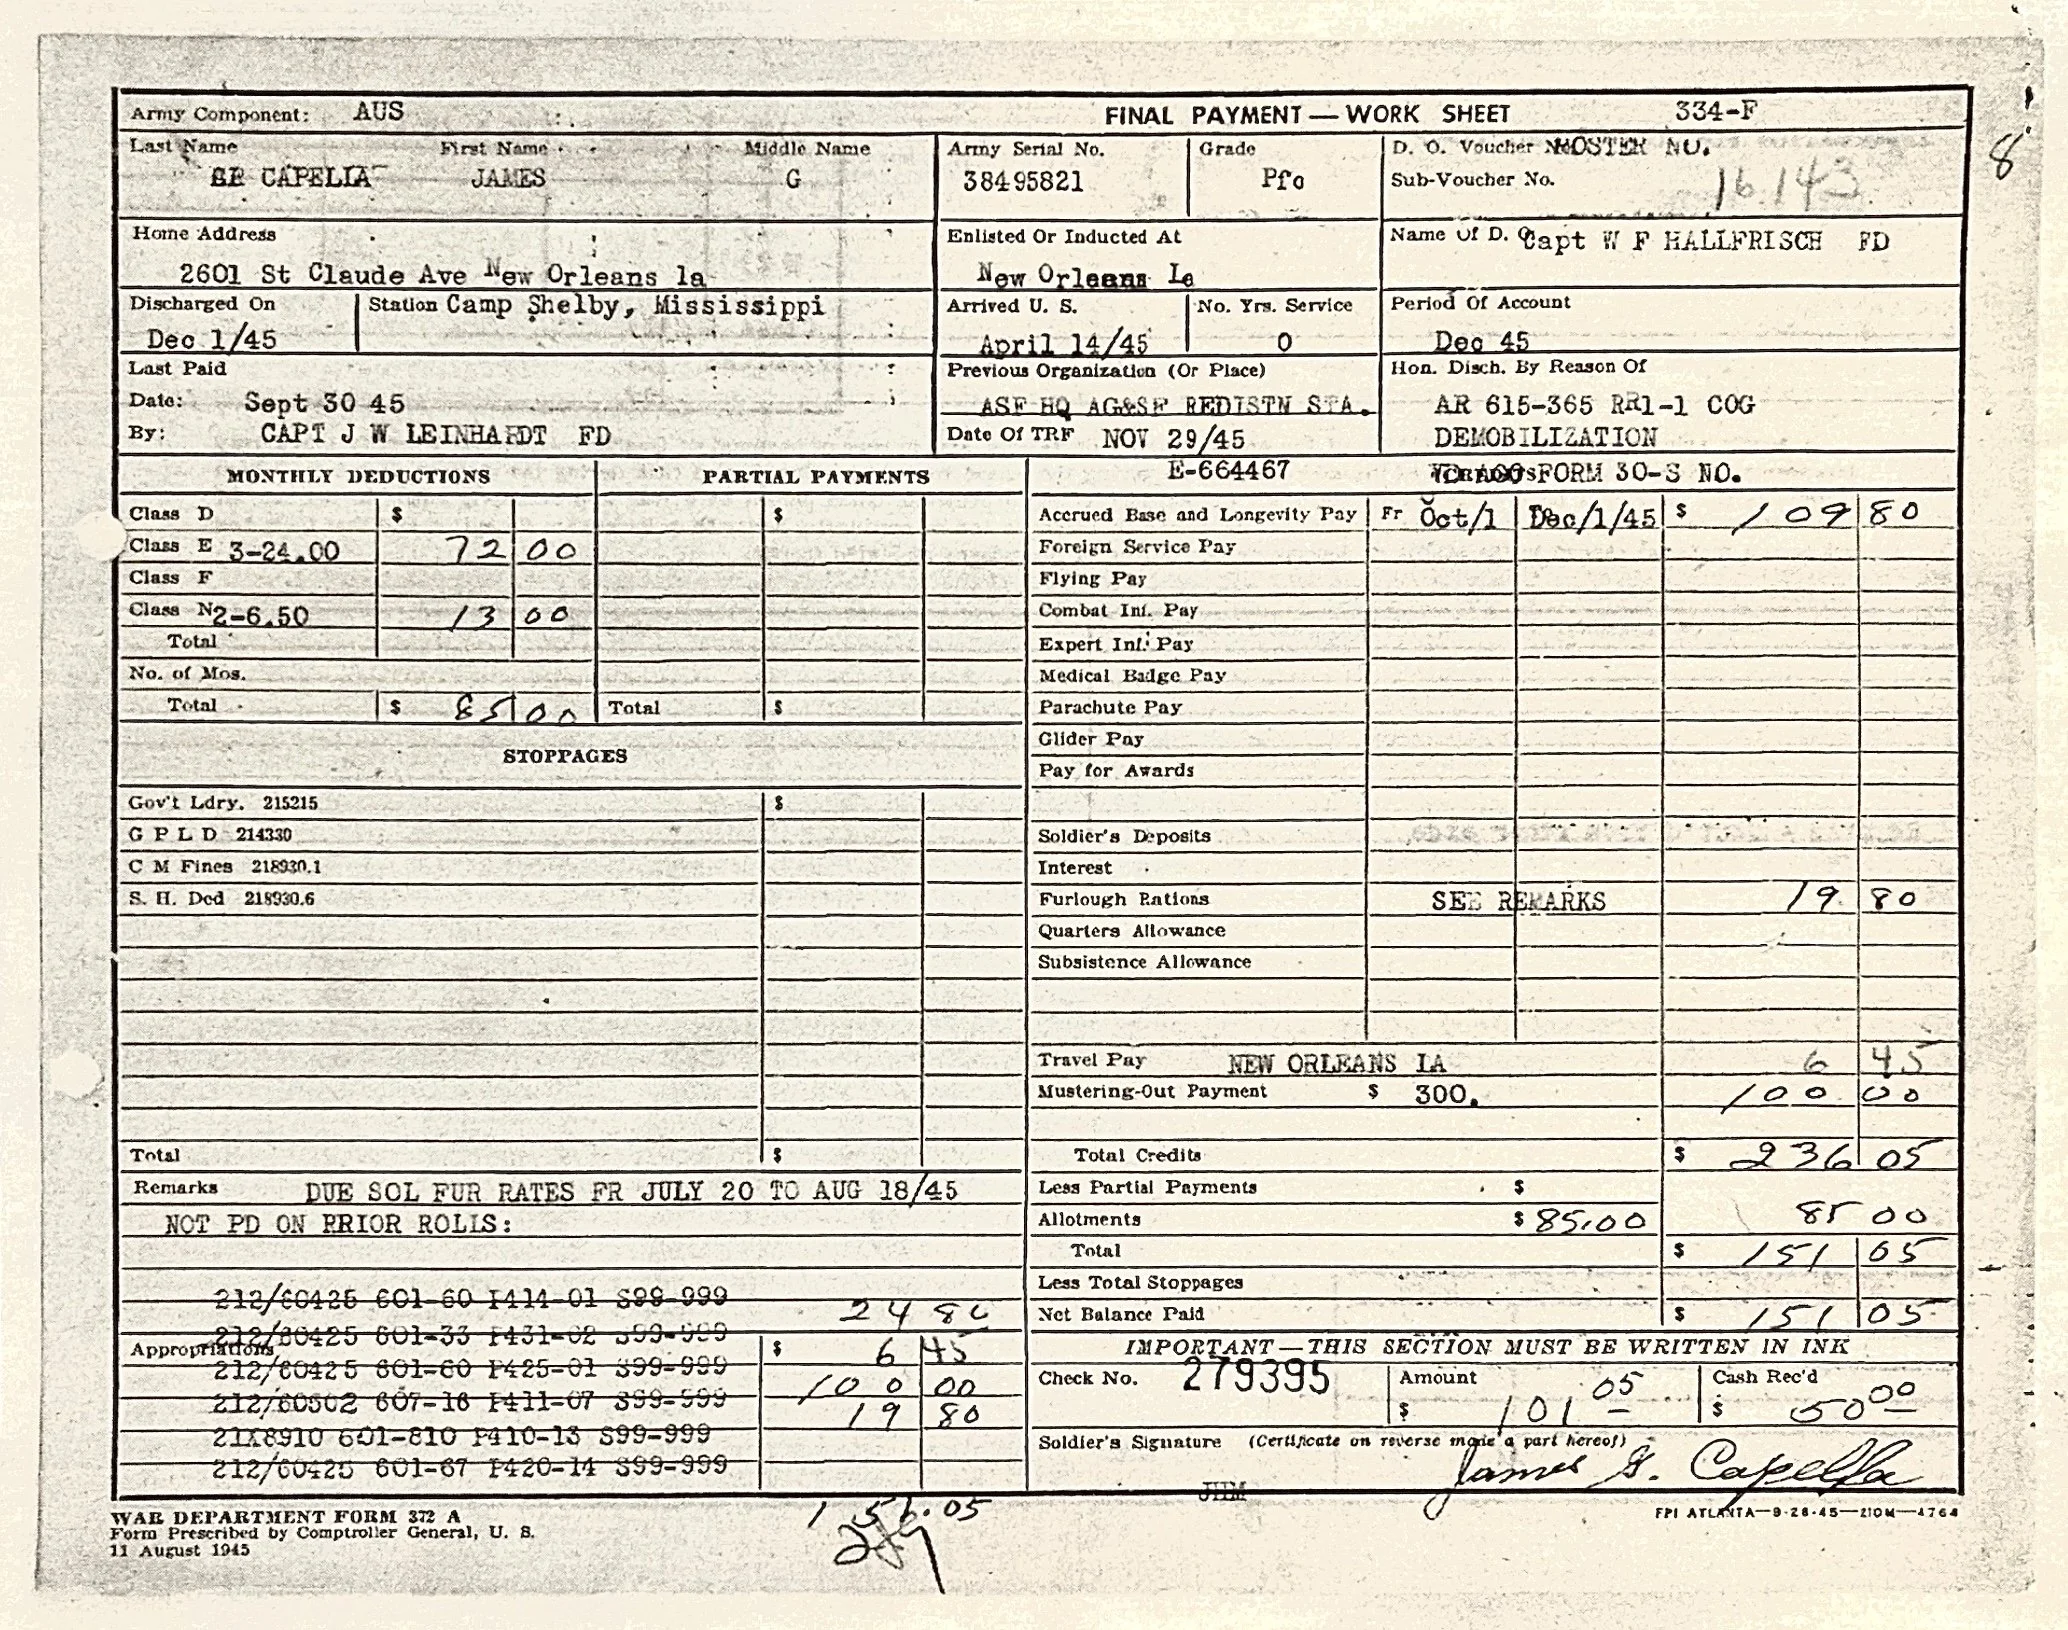 Army Component: AUS FINAL PAYMENT — WORK SHEET 334-F
8
Last Name First Name Middle Name Army Serial No. Grade D. O. Voucher ROSTER NO.
CAPELLA JAMES G 38495821 Pfc Sub-Voucher No. 16.143
Home Address Enlisted Or Inducted At Name Of D. O. Capt W F HALLFRISCH FD
2601 St Claude Ave New Orleans la New Orleans La
Discharged On Station Camp Shelby, Mississippi Arrived U. S. No. Yrs. Service Period Of Account
Dec 1/45 April 14/45 0 Dec 45
Last Paid Previous Organization (Or Place) Hon. Disch. By Reason Of
Date: Sept 30 45 ASF HQ AG&SF REDISTN STA. AR 615-365 RR1-1 COG
By: CAPT J W LEINHARDT FD Date Of TRF NOV 29/45 DEMOBILIZATION
MONTHLY DEDUCTIONS PARTIAL PAYMENTS E-664467 FORM 30-S NO.
Class D $ $ Accrued Base and Longevity Pay Fr Oct/1 Dec/1/45 $ 109 80
Class E 3-24.00 72 00 Foreign Service Pay
Class F Flying Pay
Class N 2-6.50 13 00 Combat Inf. Pay
Total Expert Inf. Pay
No. of Mos. Medical Badge Pay
Total $ 85 00 Total $ Parachute Pay
Glider Pay
STOPPAGES
Pay for Awards
Gov't Ldry. 215215 $
G P L D 214330 Soldier's Deposits
C M Fines 218930.1 Interest
S. H. Ded 218930.6 Furlough Rations SEE REMARKS 19 80
Quarters Allowance
Subsistence Allowance
Travel Pay NEW ORLEANS LA 6 45
Mustering-Out Payment $ 300. 100 00
Total $ Total Credits $ 236 05
Remarks DUE SOL FUR RATES FR JULY 20 TO AUG 18/45 Less Partial Payments $
NOT PD ON PRIOR ROLLS: Allotments $ 85.00 85 00
Total $ 151 05
Less Total Stoppages
212/60425 601-60 P414-01 S99-999 24 80 Net Balance Paid $ 151 05
212/60425 601-33 P431-02 S99-999
Appropriations $ 6 45 IMPORTANT — THIS SECTION MUST BE WRITTEN IN INK
212/60425 601-60 P425-01 S99-999 Check No. 279395 Amount $ 101 05 Cash Rec'd $ 50 00
212/60502 607-16 P411-07 S99-999 100 00
21X8910 601-810 P410-13 S99-999 19 80
Soldier's Signature (Certificate on reverse made a part hereof)
212/60425 601-67 P420-14 S99-999 James G. Capella
JHM
WAR DEPARTMENT FORM 372 A 151.05 FPI ATLANTA—9-28-45—210M—4764
Form Prescribed by Comptroller General, U. S.
11 August 1945